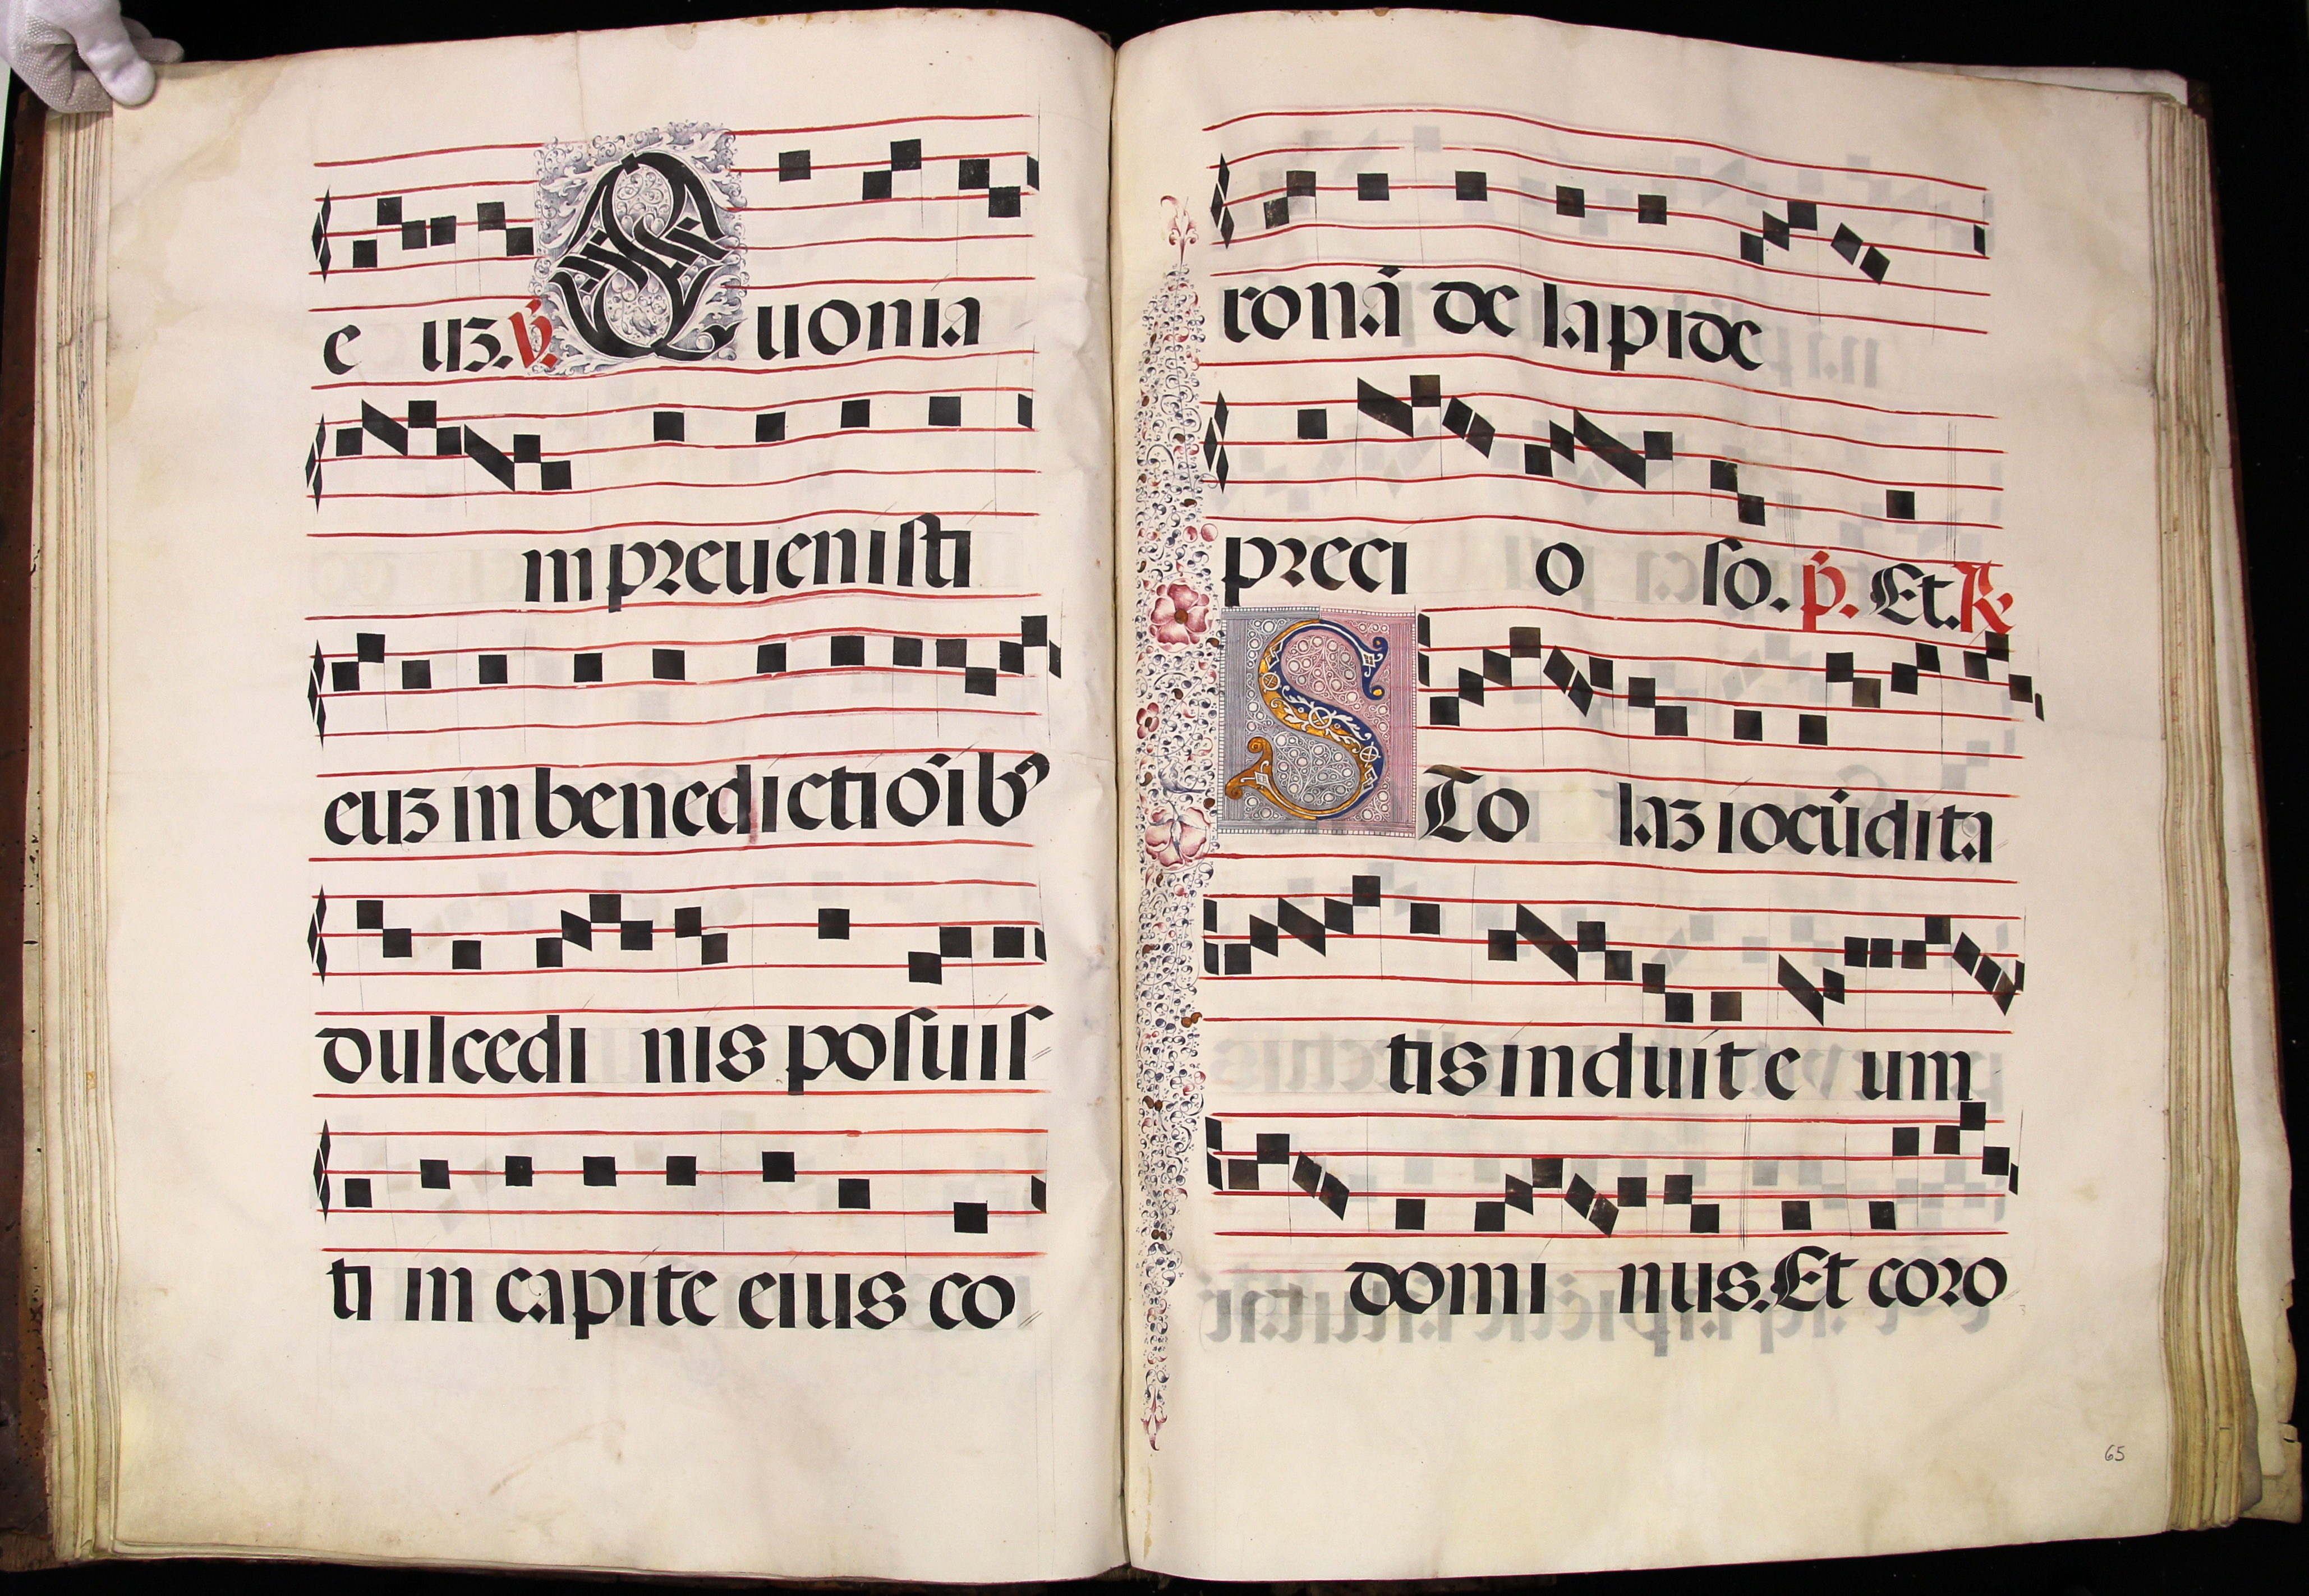 e uʒ. ℣. Quonia
m preueniſti
euʒ in benedictiōibꝰ
dulcedi nis poſuiſ
ti in capite eius co
ronā de lapide
preci o ſo. p̄. Et. ℟.
STo laʒ iocūdita
tis induit e um
domi nus. Et coro
65